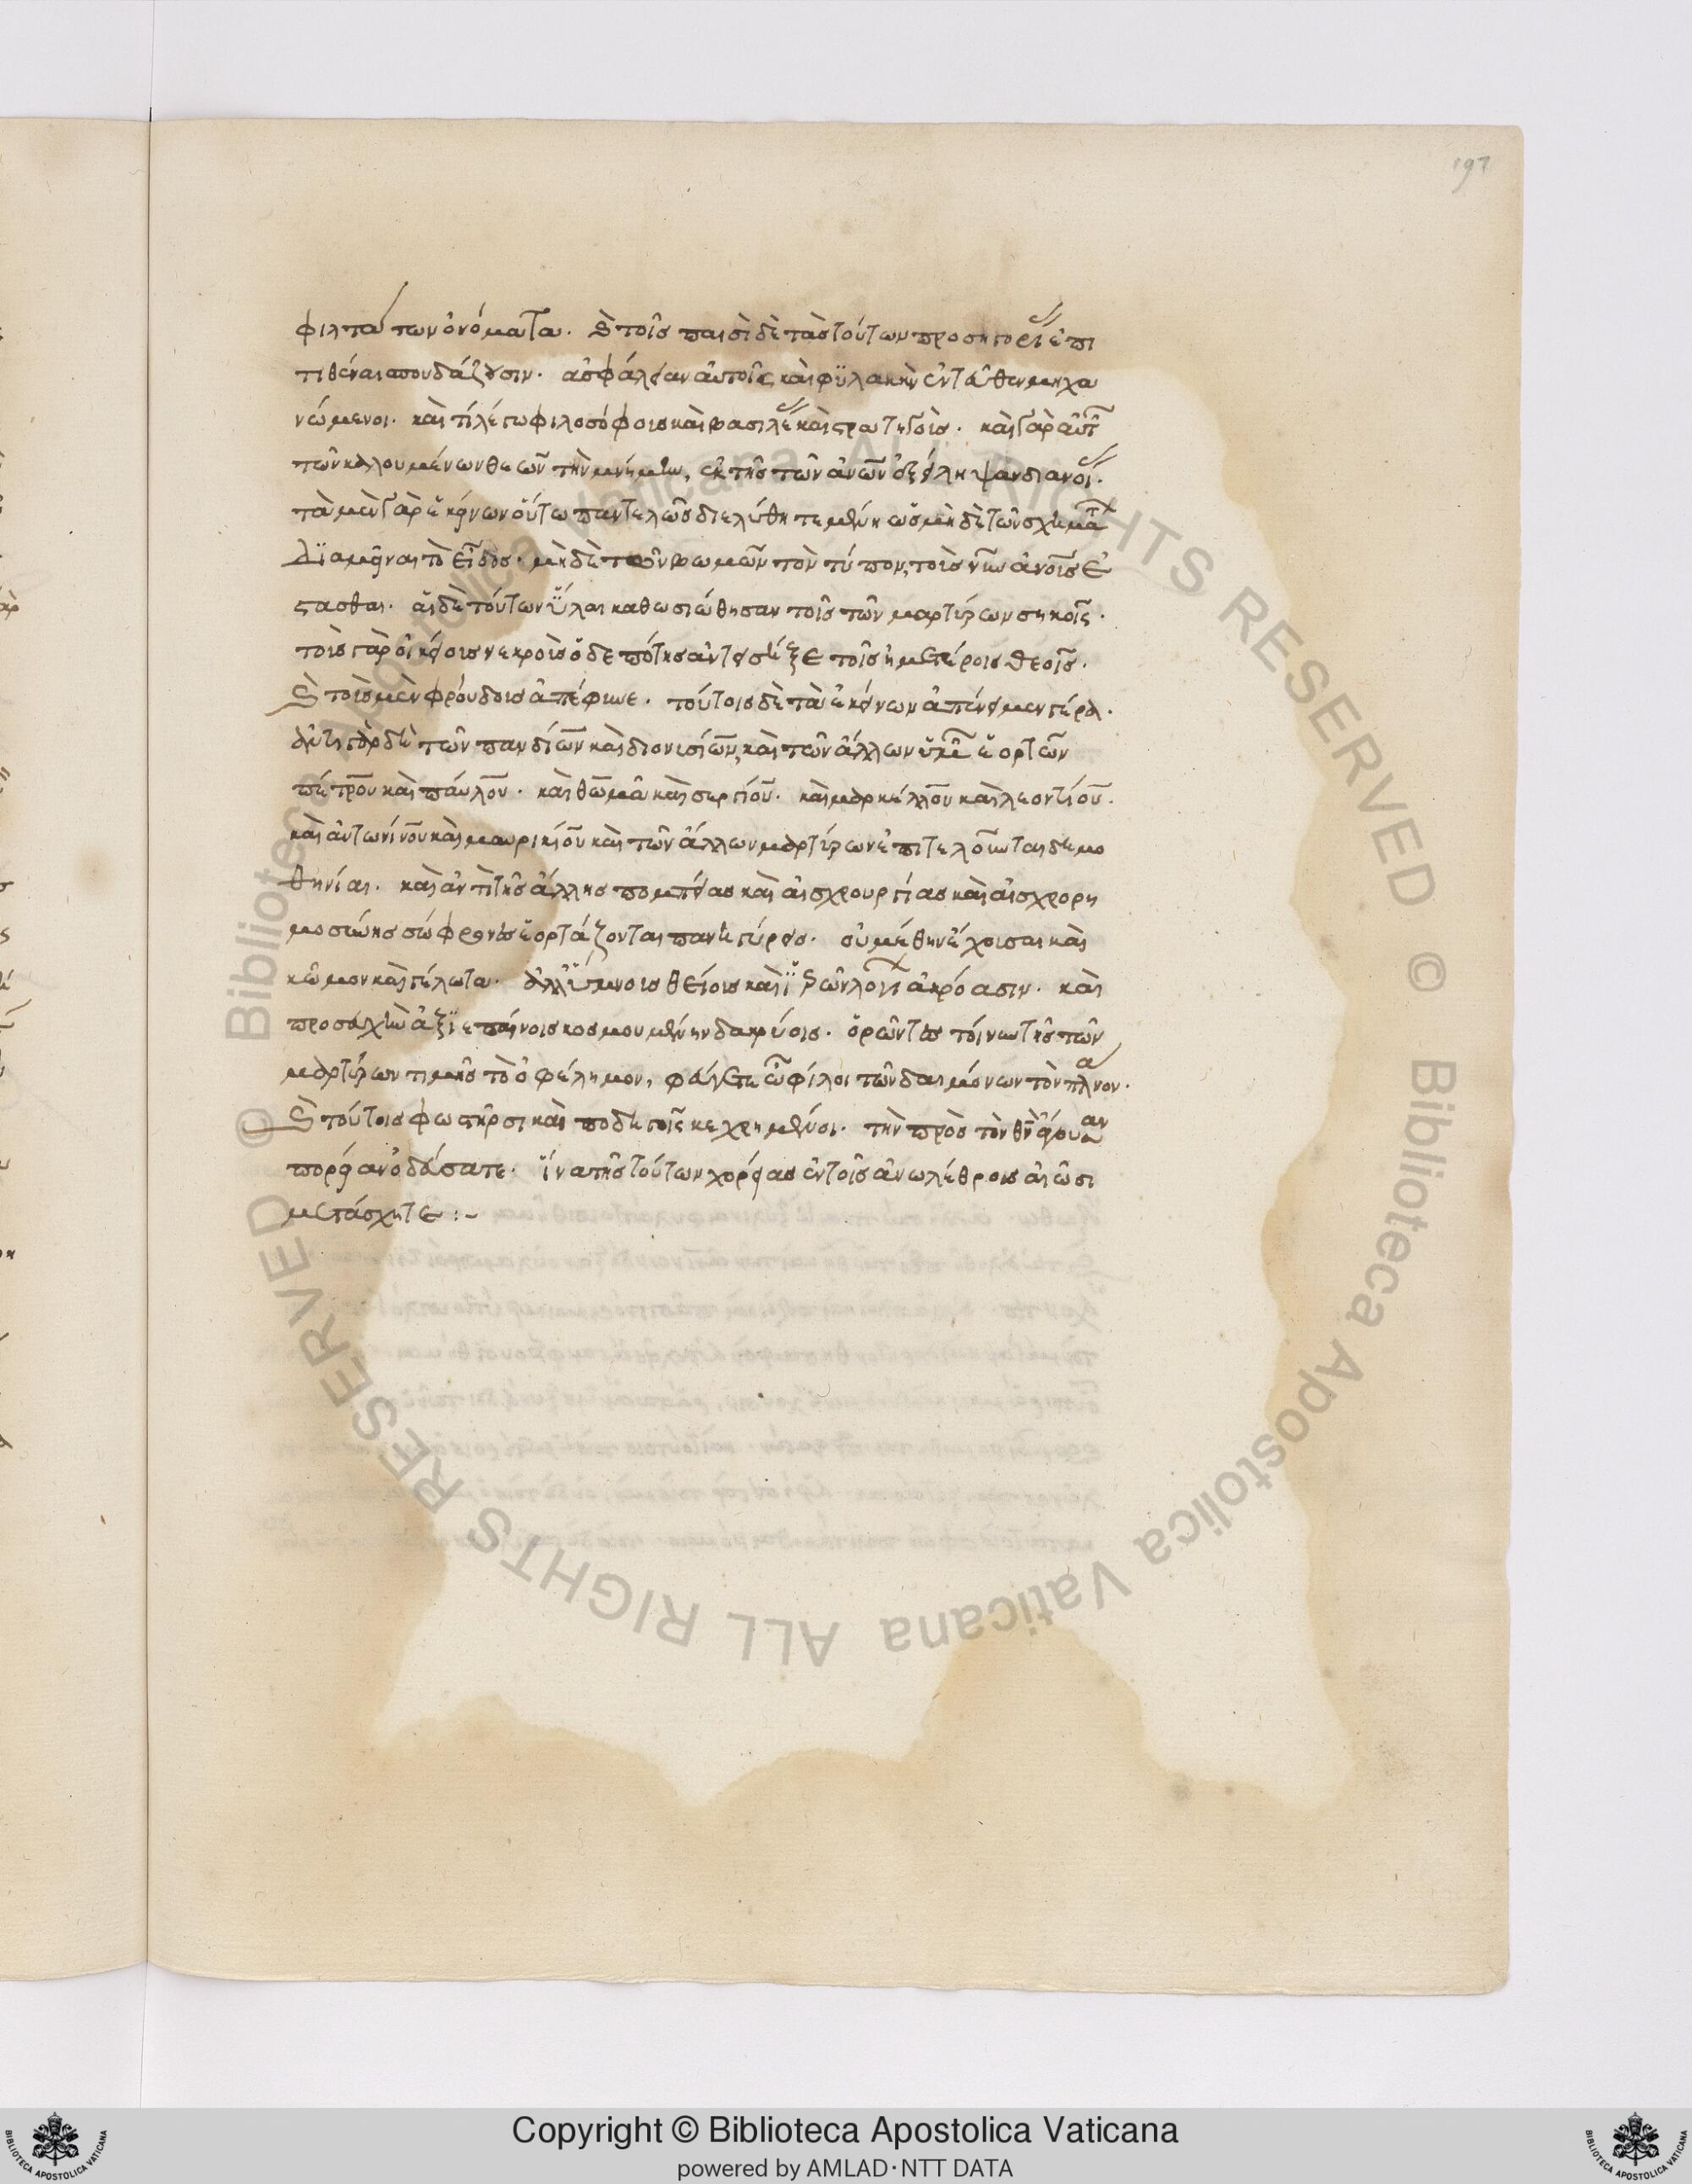 197
φιλτάτων ὀνόματα. καὶ τοῖς παισὶ δὲ τὰς τούτων προσηγορίας ἐπι
τιθέναι σπουδάζουσιν. ἀσφάλειαν αὐτοῖς καὶ φυλακὴν ἐντεῦθεν μηχα
νώμενοι. καὶ τί λέγω φιλοσόφοις καὶ βασιλέας καὶ στρατηγοῖς. καὶ γὰρ αὐτῶν
τῶν καλουμένων θεῶν τὴν μνήμην, ἐκ τῆς τῶν ἀνων ἐξήλειψαν διανοίας.
τὰ μὲν γὰρ ἐκείνων οὕτω παντελῶς διελύθη τεμένη ὡς μηδὲ τῶν σχημάτων
διαμεῖναι τὸ εἶδος. μηδὲ τῶν βωμῶν τὸν τύπον, τοὶς νῦν ἀνοις ἐ
στασθαι. αἱ δὲ τούτων ὗλαι καθωσιώθησαν τοῖς τῶν μαρτύρων σηκοῖς.
τοὺς γὰρ οἰκείους νεκροὺς ὁ δεσπότης ἀντεισῆξε τοῖς ἡμετέροις θεοῖς.
καὶ τοὺς μὲν φρούδους ἀπέφηνε. τούτοις δὲ τὰ ἐκείνων ἀπένειμεν γέρα.
ἀντὶ γὰρ δὴ τῶν πανδίων καὶ διονυσίων, καὶ τῶν ἄλλων ὑμῶν ἑορτῶν
πέτρου καὶ παύλου. καὶ θωμᾶ καὶ σεργίου. καὶ μαρκέλλου καὶ λεοντίου.
καὶ ἀντωνίνου καὶ μαυρικίου καὶ τῶν ἄλλων μαρτύρων ἐπιτελοῦνται δημο
θηνίαι. καὶ ἀντὶ τῆς ἄλλης πομπείας καὶ αἰσχρουργίας καὶ αἰσχρορη
μοσύνης σώφρονες ἑορτάζονται πανηγύρεις. οὐ μέθην ἔχουσαι καὶ
κῶμον καὶ γέλωτα. ἀλλ' ὕμνους θείους καὶ ἱερῶν λογίων ἀκρόασιν. καὶ
προσευχὴν ἀξιεπαίνοις κοσμουμένην δακρύοις. ὁρῶντες τοίνυν τῆς τῶν
μαρτύρων τιμῆς τὸ ὀφέλημον, φεύγετε ὦ φίλοι τῶν δαιμόνων τὸν πλάνον.
καὶ τούτοις φωστῆρσι καὶ ποδηγοῖς κεχρημένοι. τὴν πρὸς τὸν θν ἄγουσαν
πορείαν ὁδεύσατε. ἵνα τῆς τούτων χορείας ἐν τοῖς ἀνωλέθροις αἰῶσι
μετάσχητε:-
Copyright © Biblioteca Apostolica Vaticana
powered by AMLAD·NTT DATA